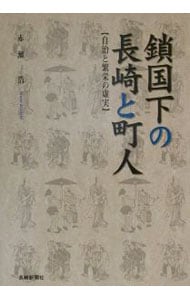 鎖国下の
長崎と町人
【自治と繁栄の虚実】
赤瀬 浩
長崎新聞社